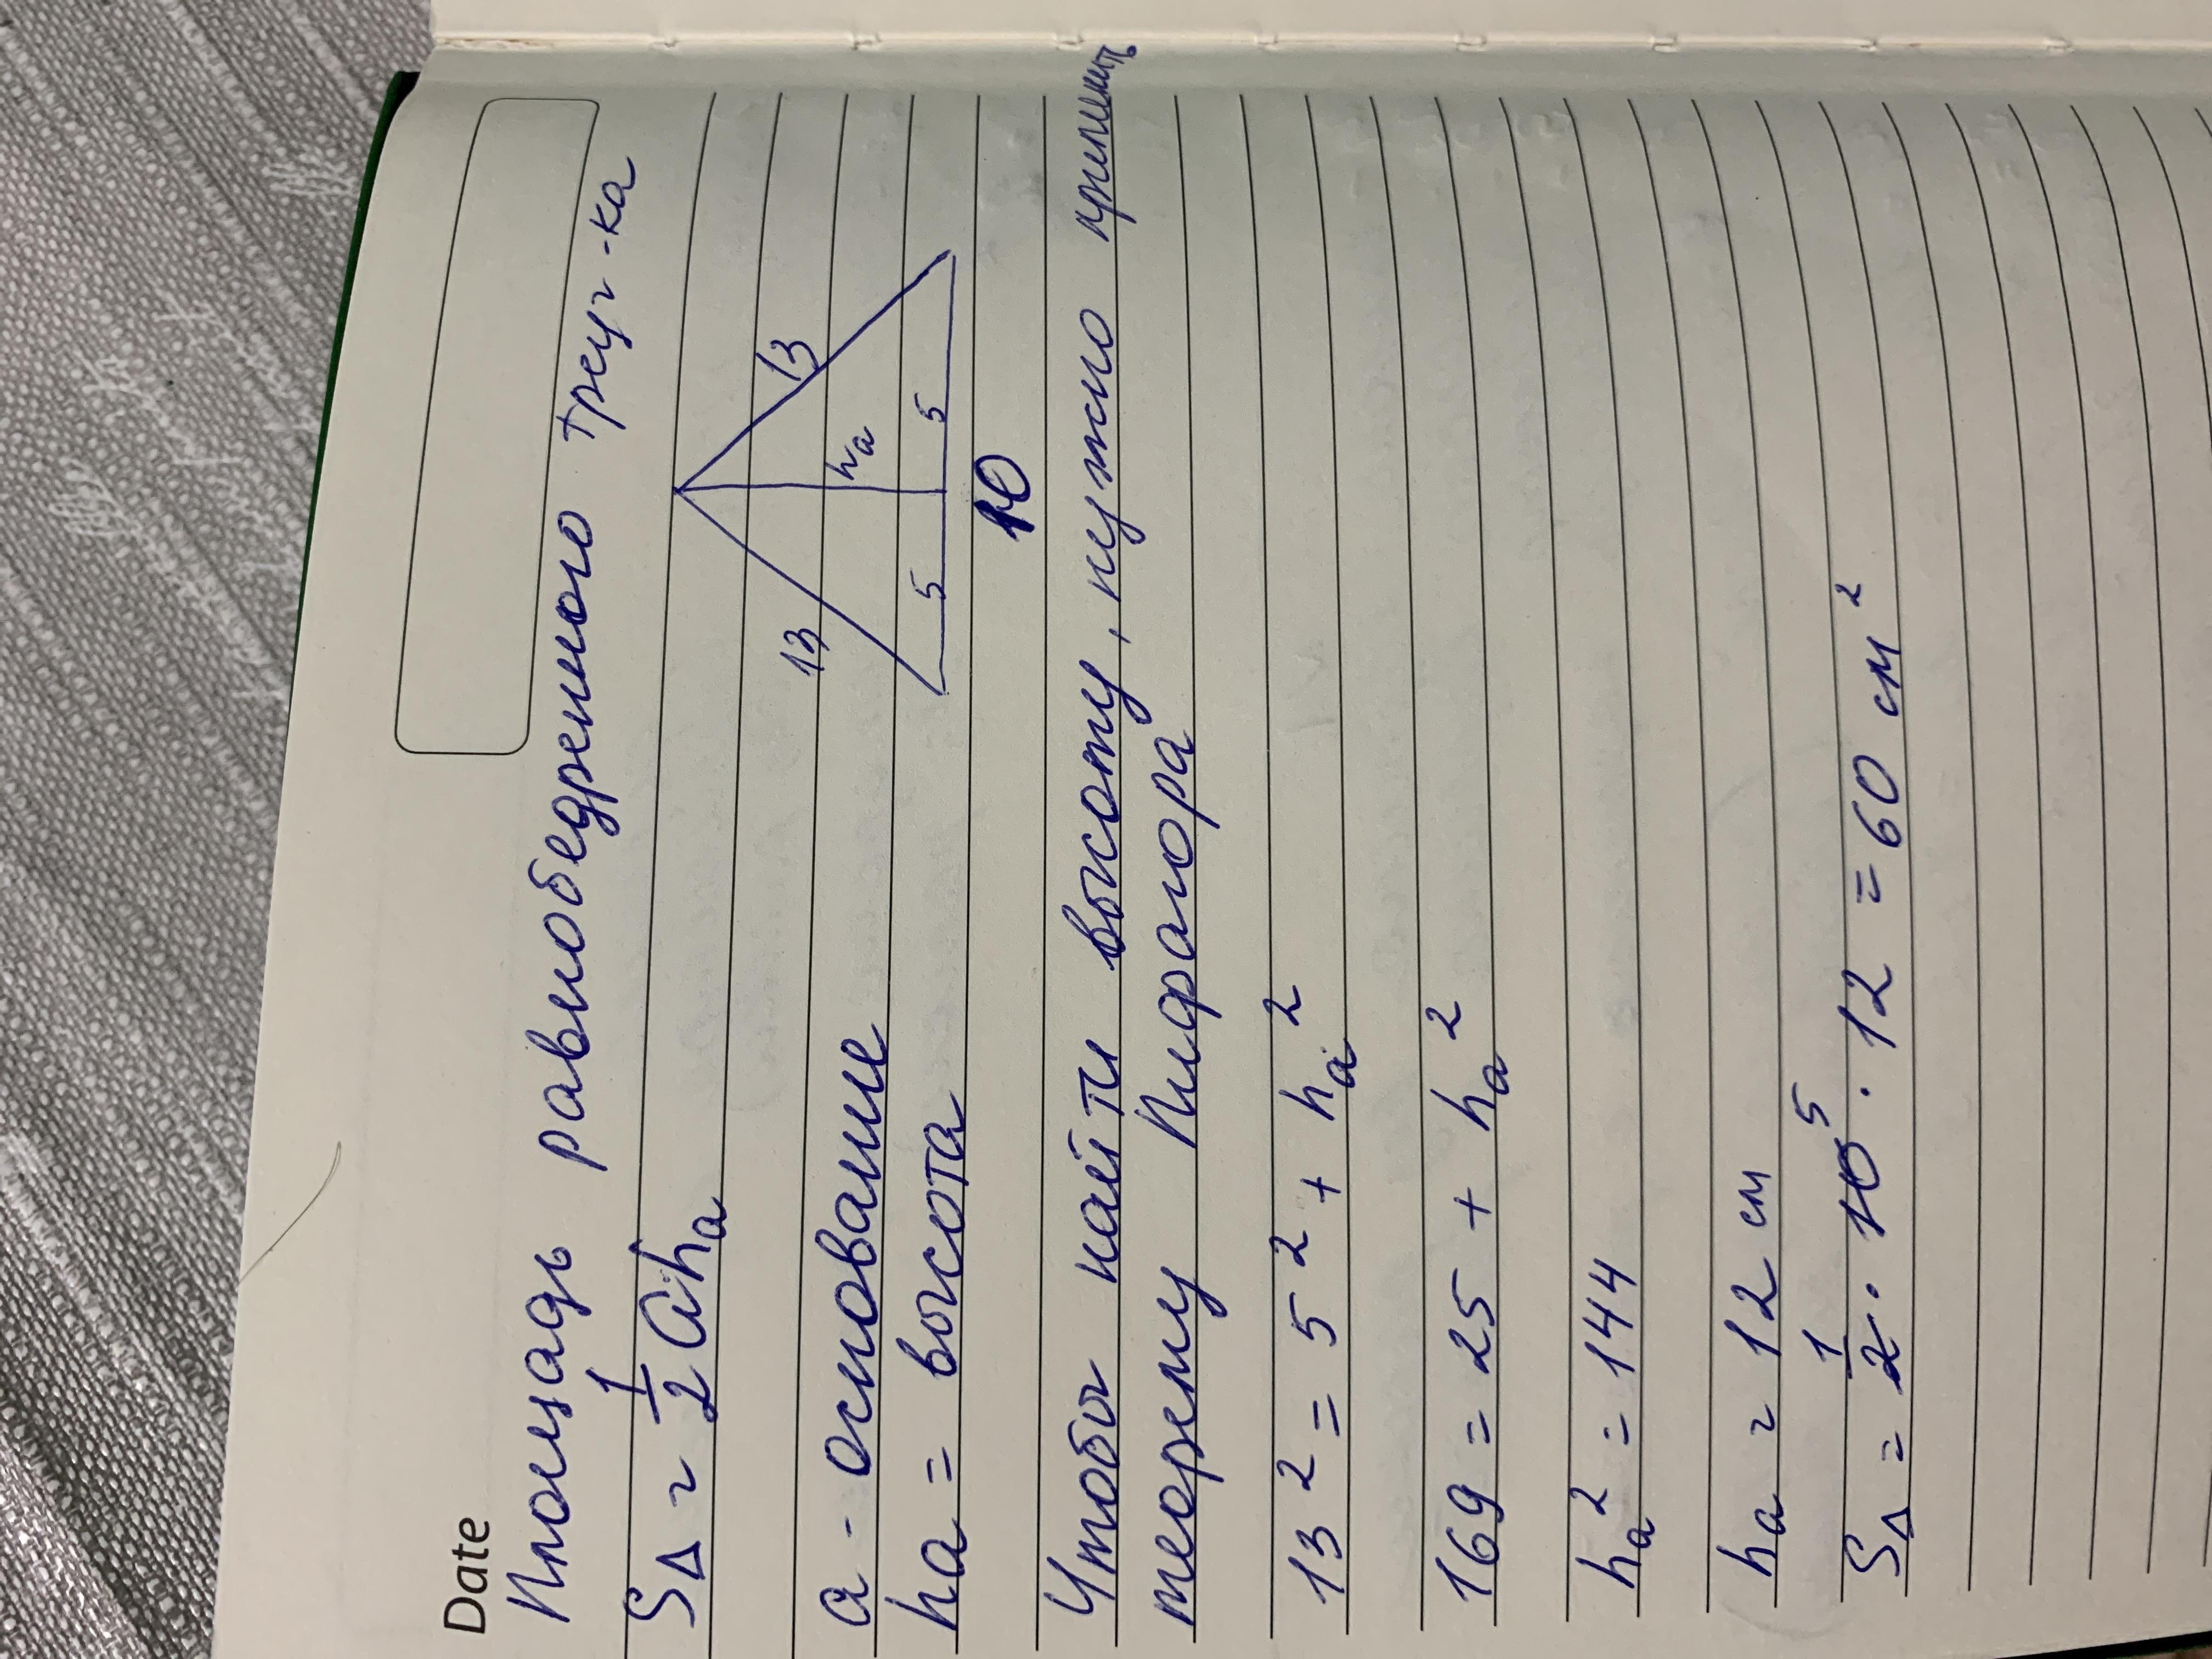 Date
Площадь равнобедренного треуг-ка
S△ = 1/2 a·hₐ
13
13
hₐ
5
5
10
a - основание
ha = высота
Чтобы найти высоту, нужно применить
теорему Пифагора
13² = 5² + hₐ²
169 = 25 + hₐ²
hₐ² = 144
hₐ = 12 см
S△ = 1/2 · 10 5 · 12 = 60 см²